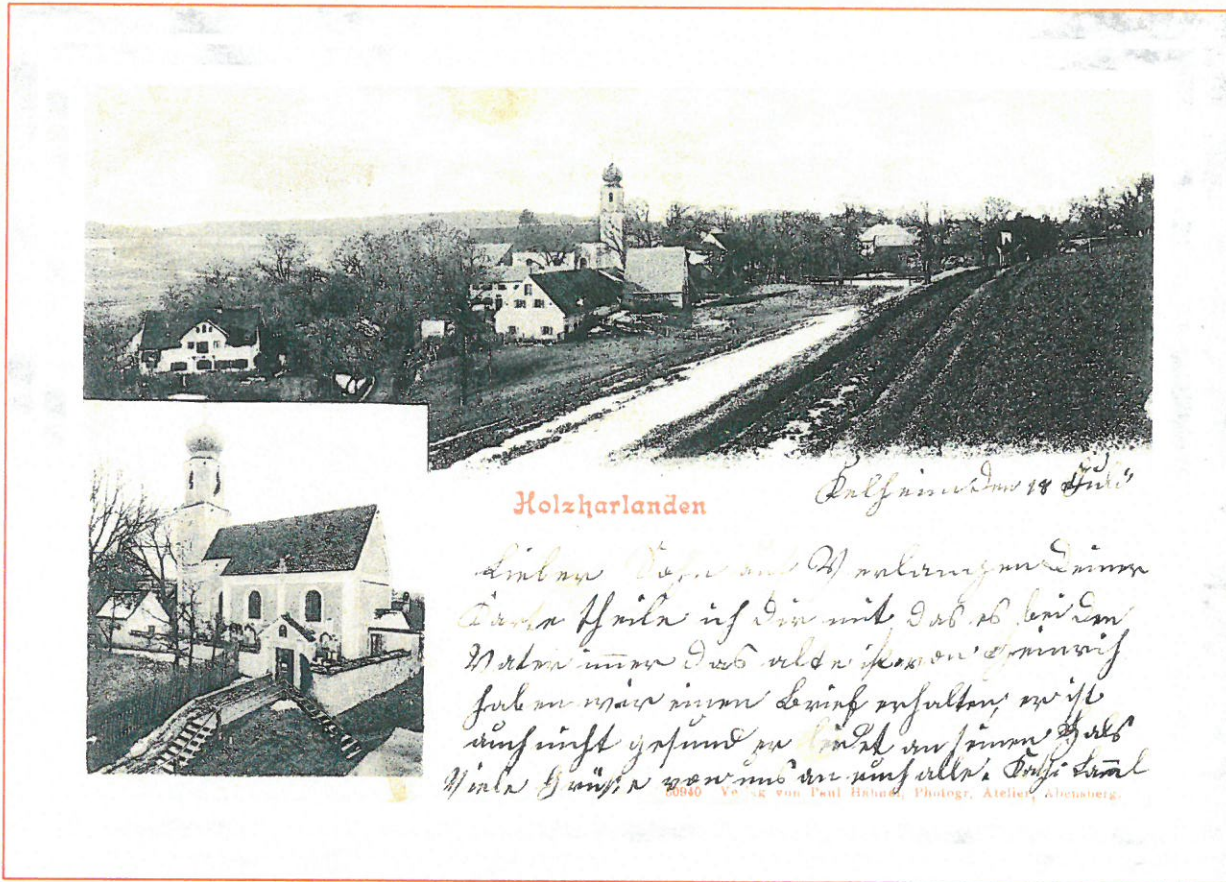 Holzharlanden
Kelheim den 18 Juli
Lieber Sohn auf Verlangen deiner
Karte theile ich dir mit das es bei den
Vater immer das alte ist von Heinrich
haben wir einen Brief erhalten, er ist
auch nicht gesund er leidet an seinen Hals
Viele Grüße von uns an euch alle.
50940 Verlag von Paul Hahnel, Photogr. Atelier, Abensberg.